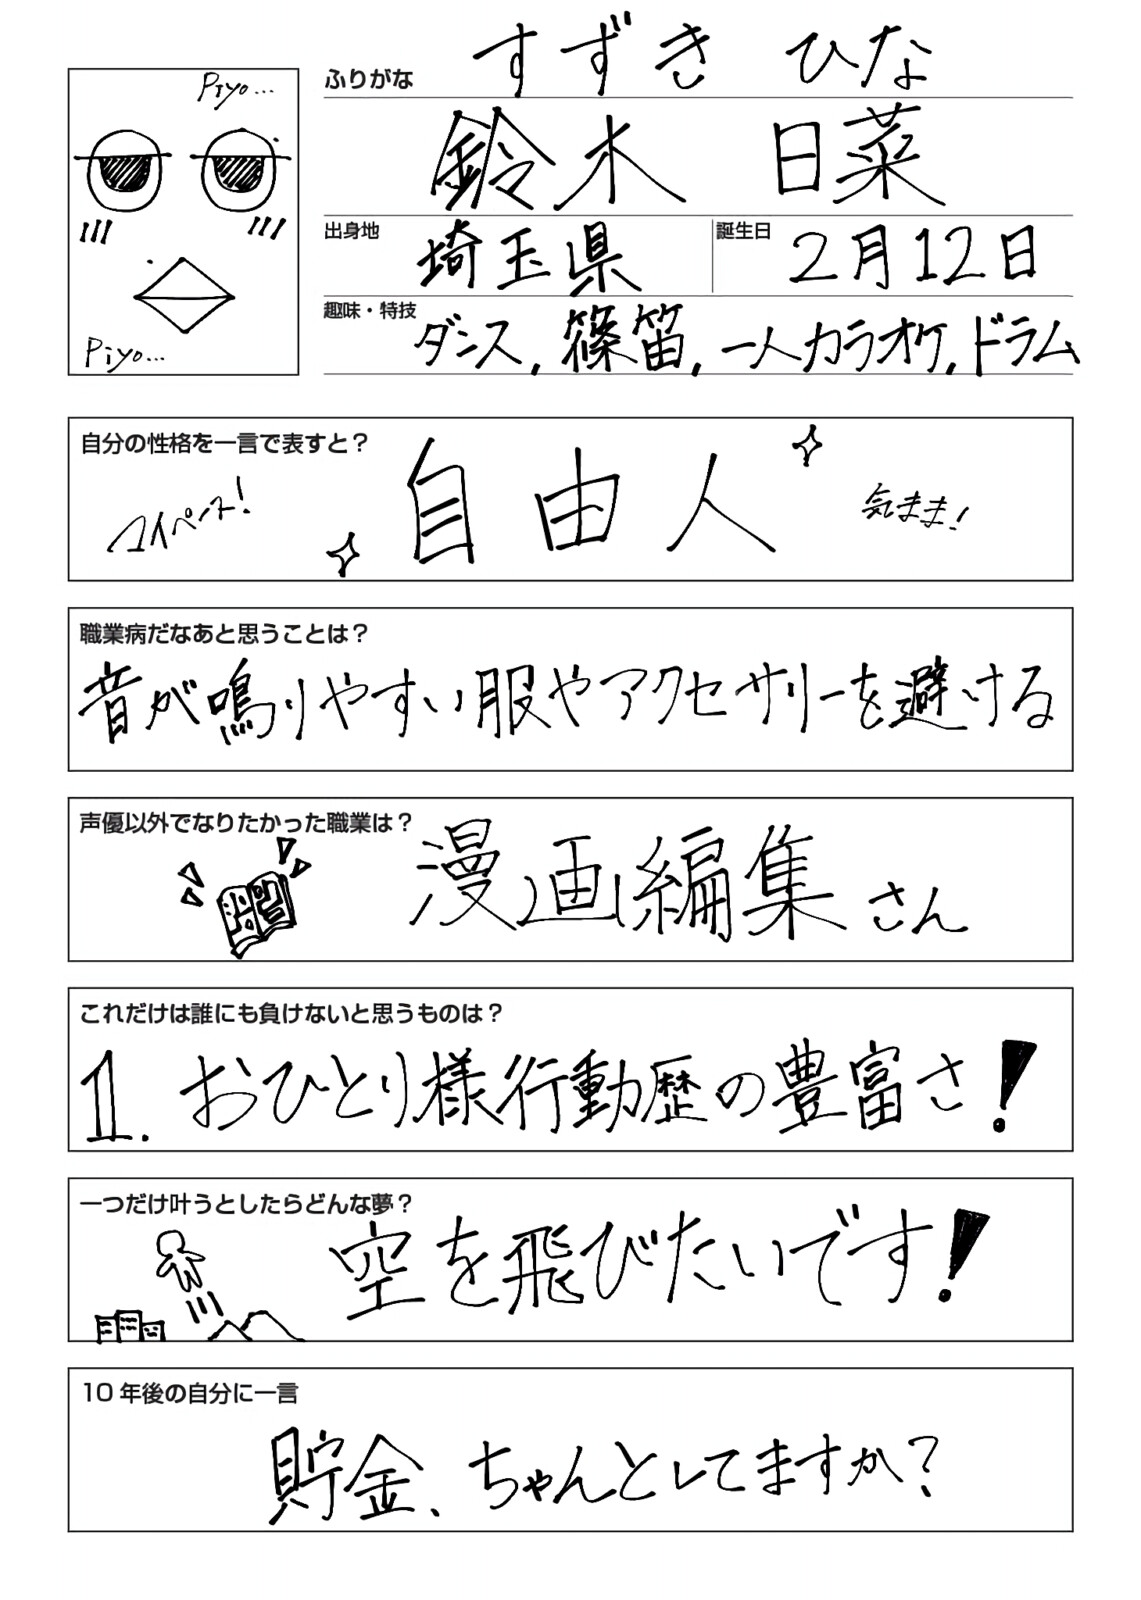 Piyo...
Piyo...
ふりがな すずき ひな
鈴木 日菜
出身地 埼玉県 誕生日 2月12日
趣味・特技 ダンス,篠笛,一人カラオケ,ドラム
自分の性格を一言で表すと？
マイペース! 自由人 気まま!
職業病だなあと思うことは？
音が鳴りやすい服やアクセサリーを避ける
声優以外でなりたかった職業は？
漫画編集さん
これだけは誰にも負けないと思うものは？
1. おひとり様行動歴の豊富さ!
一つだけ叶うとしたらどんな夢？
空を飛びたいです!
10年後の自分に一言
貯金、ちゃんとしてますか?